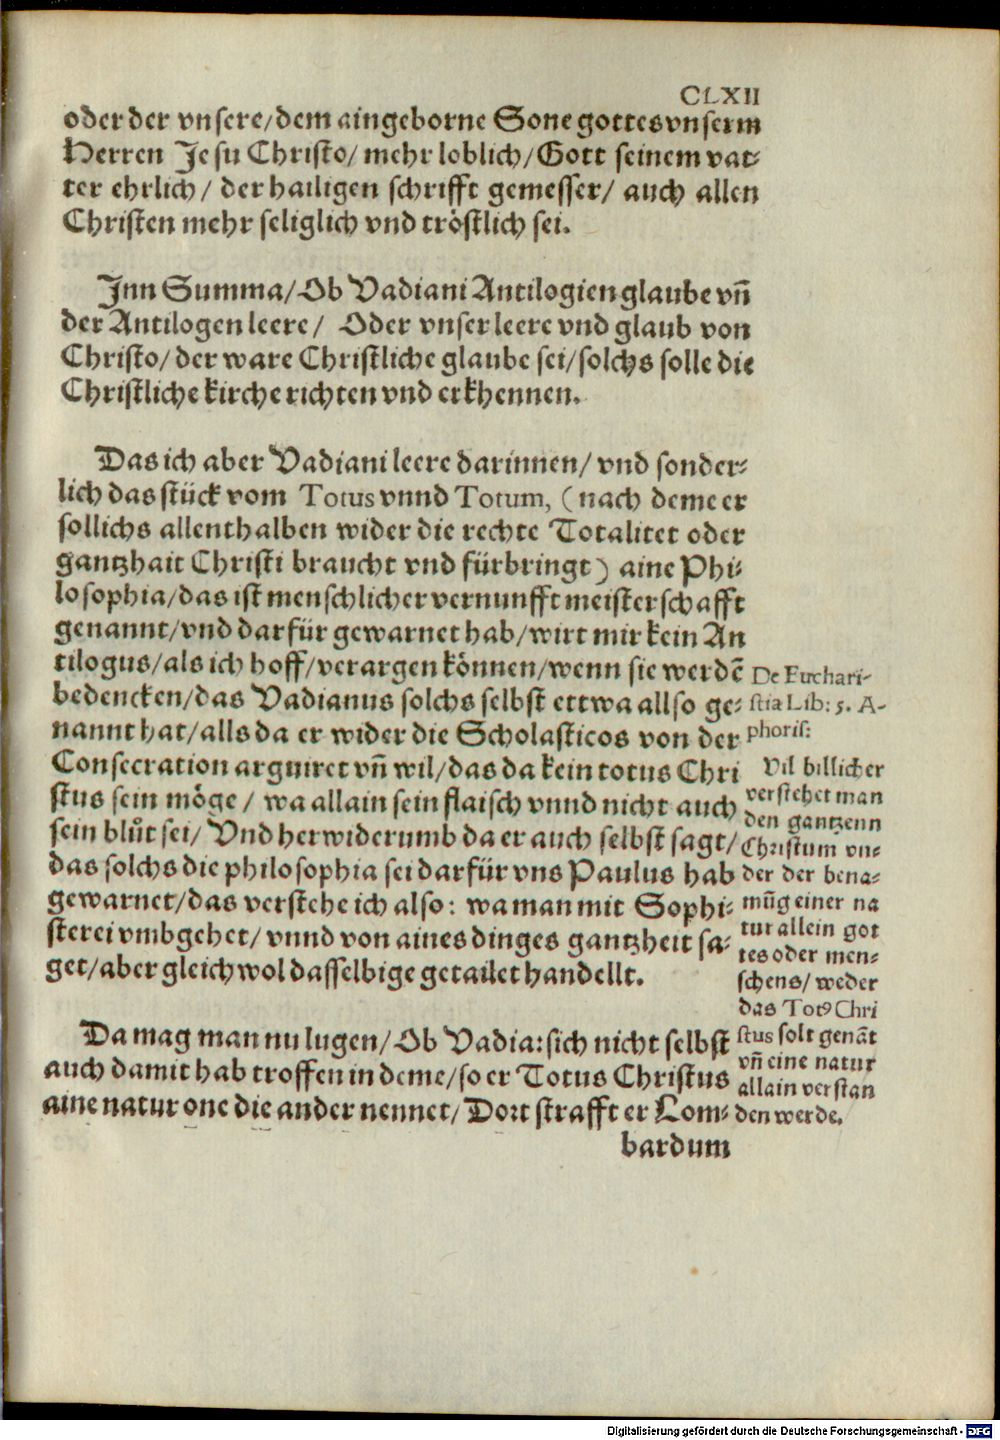 CLXII
oder der vnsere/dem aingeborne Sone gottes vnserm
Herren Jesu Christo/ mehr loblich/ Gott seinem vat-
ter ehrlich/ der hailigen schrifft gemesser/ auch allen
Christen mehr seliglich vnd tröstlich sei.
Jnn Summa/ Ob Vadiani Antilogien glaube vñ
der Antilogen leere/ Oder vnser leere vnd glaub von
Christo/ der ware Christliche glaube sei/ solchs solle die
Christliche kirche richten vnd erkhennen.
Das ich aber Vadiani leere darinnen/ vnd sonder-
lich das stück vom Totus vnnd Totum, ( nach deme er
sollichs allenthalben wider die rechte Totalitet oder
gantzhait Christi braucht vnd fürbringt ) aine Phi-
losophia/ das ist menschlicher vernunfft meisterschafft
genannt/ vnd darfür gewarnet hab/ wirt mir kein An
tilogus/ als ich hoff/ verargen können/ wenn sie werdē
bedencken/ das Vadianus solchs selbst ettwa allso ge-
nannt hat/ alls da er wider die Scholasticos von der
Consecration arguiret vñ wil/ das da kein totus Chri
stus sein möge/ wa allain sein flaisch vnnd nicht auch
sein blůt sei/ Vnd herwiderumb da er auch selbst sagt/
das solchs die philosophia sei darfür vns Paulus hab
gewarnet/ das verstehe ich also: wa man mit Sophi-
sterei vmbgehet/ vnnd von aines dinges gantzheit sa-
get/ aber gleichwol dasselbige getailet handellt.
Da mag man nu lugen/ Ob Vadia: sich nicht selbst
auch damit hab troffen in deme/ so er Totus Christus
aine natur one die ander nennet/ Dort strafft er Lom-
bardum
De Euchari-
stia Lib: 5. A-
phoris:
Vil billicher
verstehet man
den gantzenn
Christum vn-
der der bena-
mūg einer na
tur allein got
tes oder men-
schens/ weder
das Totꝰ Chri
stus solt genāt
vñ eine natur
allain verstan
den werde.
Digitalisierung gefördert durch die Deutsche Forschungsgemeinschaft - DFG